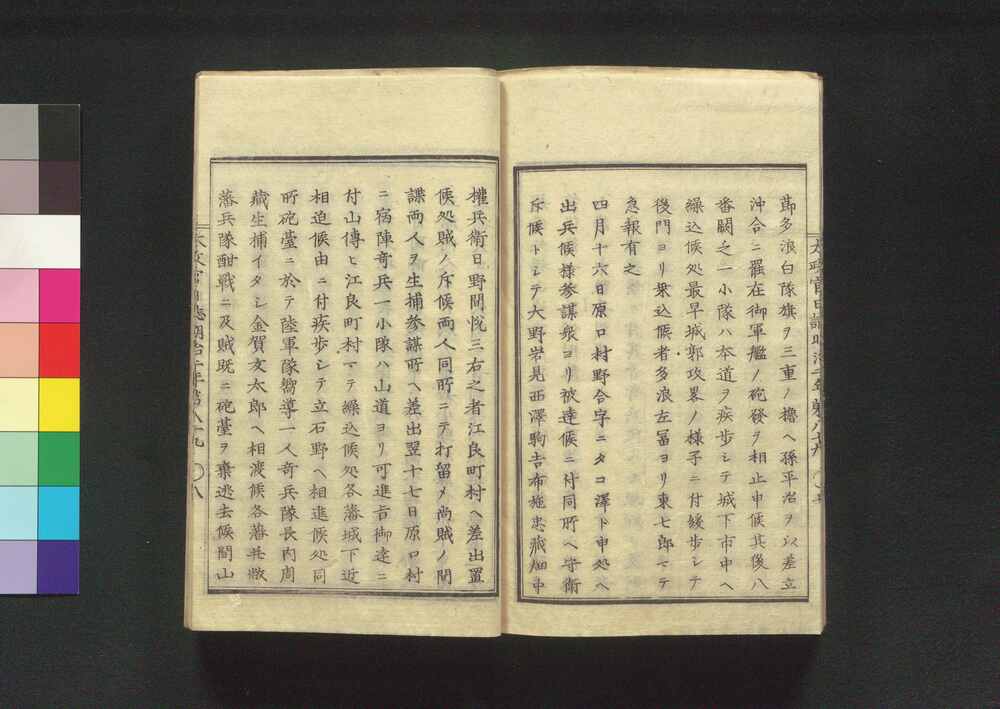 節多浪白隊旗ヲ三重ノ櫓ヘ孫平治ヲ以差立
沖合ニ罷在御軍艦ノ砲發ヲ相止申候其後八
番關之一小隊ハ本道ヲ疾歩シテ城下市中ヘ
繰込候処最早城郭攻畧ノ樣子ニ付緩歩シテ
後門ヨリ乗込候者多浪左冨ヨリ東七郎マテ
急報有之
四月十六日原口村野合字ニタコ澤ト申処ヘ
出兵候様参謀衆ヨリ被達候ニ付同所ヘ守衛
斥候トシテ大野岩見西澤駒吉布施忠藏畑中
權兵衛日野間悦三右之者江良町村ヘ差出置
候処賊ノ斥候両人同所ニテ打留メ尚賊ノ間
諜両人ヲ生捕参謀所ヘ差出翌十七日原口村
ニ宿陣奇兵一小隊ハ山道ヨリ可進旨御達ニ
付山傳ヒ江良町村マテ繰込候処各藩城下近
相迫候由ニ付疾歩シテ立石野ヘ相進候処同
所砲臺ニ於テ陸軍隊嚮導一人奇兵隊長内周
藏生捕イタシ金賀文太郎ヘ相渡候各藩兵散
藩兵隊酣戰ニ及賊既ニ砲臺ヲ棄逃去候間山